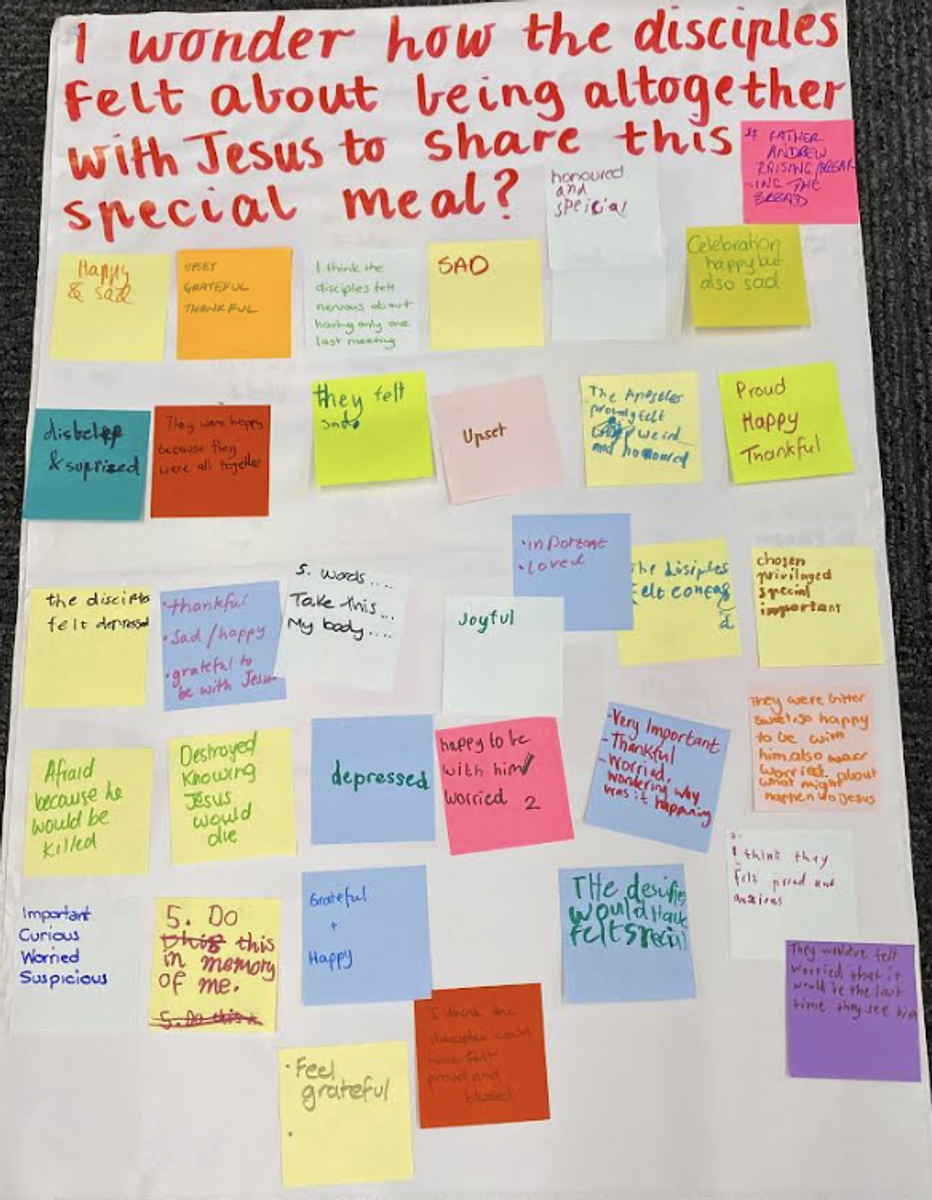 I wonder how the disciples
felt about being altogether
with Jesus to share this
special meal?
4 FATHER
ANDREW
RAISING/BREAK
-ING THE
BREAD
honoured
and
speicial
Happy
& sad
UPSET
GRATEFUL
THANKFUL
I think the
disciples felt
nervous about
having only one
last meeting
SAD
Celebration
happy but
also sad
disbelief
& suprized
They were happy
because they
were all together
they felt
sad
Upset
The Apostles
felt
weird
and honoured
Proud
Happy
Thankful
the disciples
felt depressed
• thankful
• Sad/happy
• grateful to
be with Jesus
5. Words....
Take this...
My body....
• inportant
• Loved
Joyful
the disiples
felt
chosen
privilaged
special
important
Afraid
because he
would be
killed
Destroyed
Knowing
Jesus
would
die
depressed
happy to be
with him/
worried 2
-Very Important
-Thankful
-Worried,
wondering why
was it happening
They were bitter
sweet, so happy
to be with
him, also
worried about
what might
happen to Jesus
I think they
felt and
anxious
Important
Curious
Worried
Suspicious
5. Do
this this
in memory
of me.
5. Do this in
Grateful
+
Happy
THe desiples
would Have
feltSpecial
They would've felt
worried that it
would be the last
time they see him
• Feel
grateful
I think the
disciples could
have felt
proud and
blessed